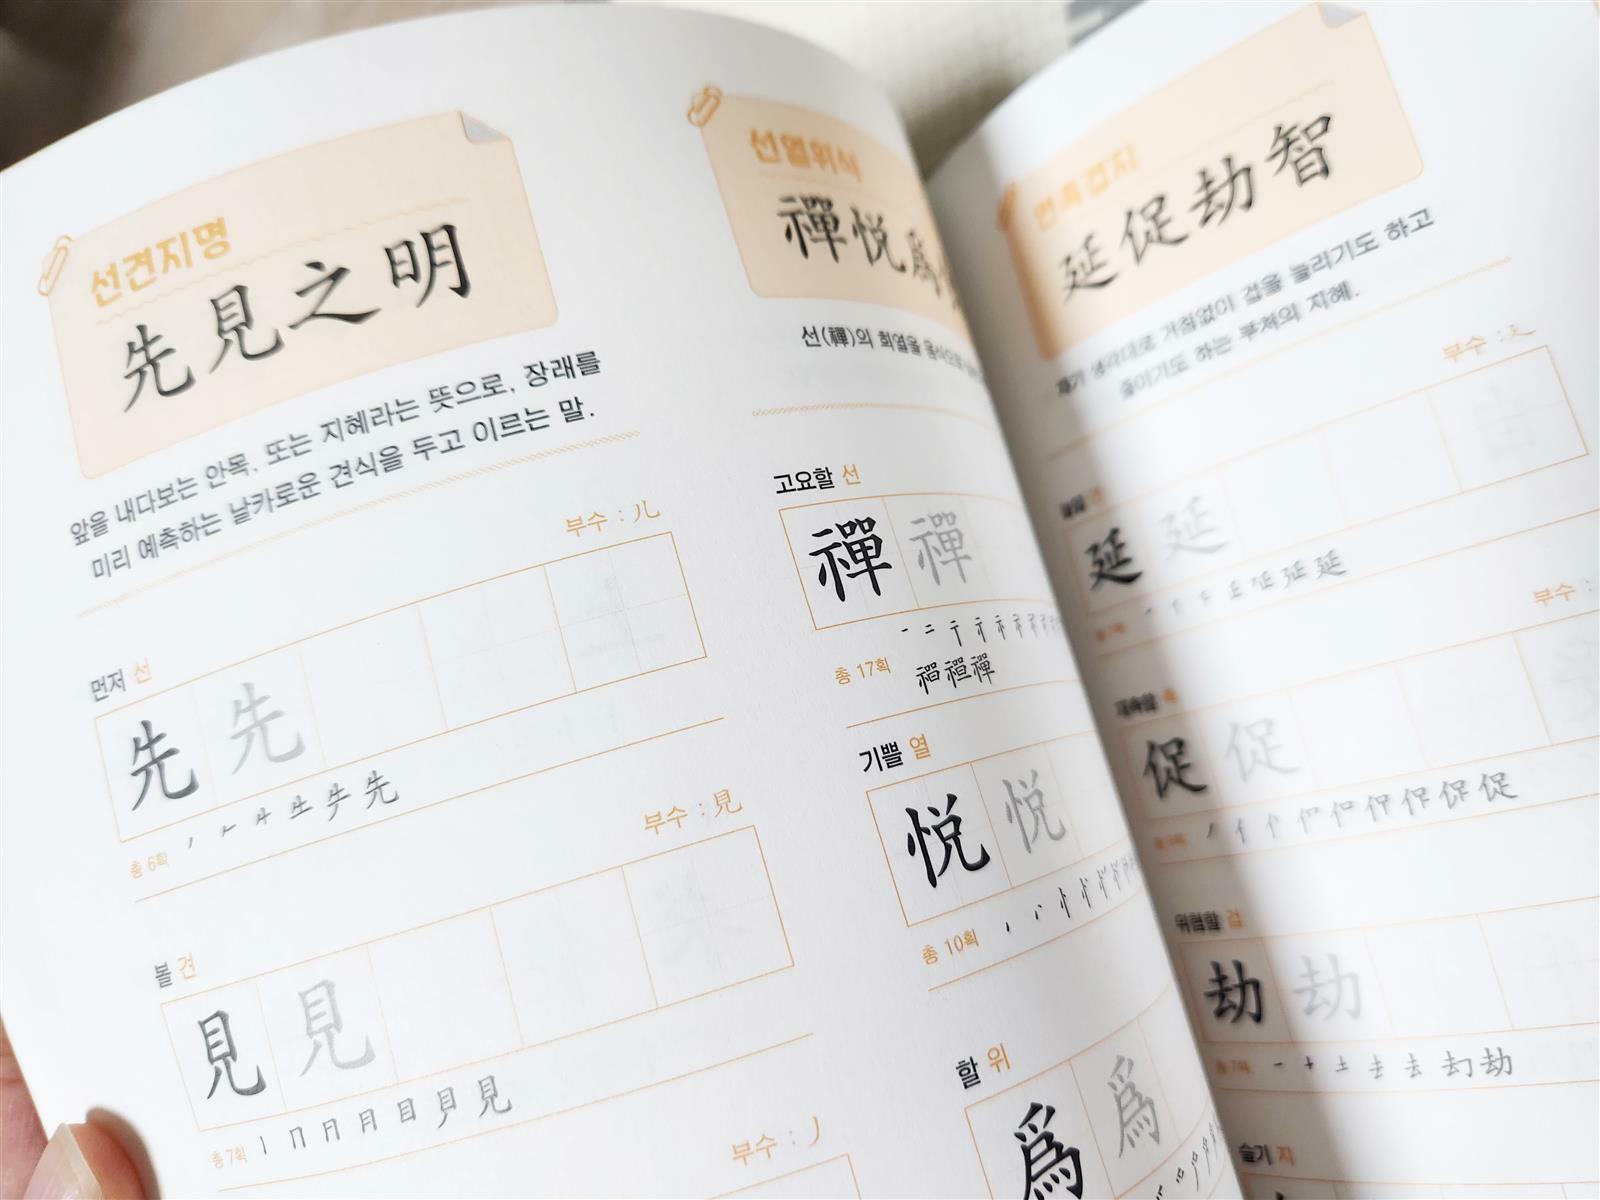 선견지명
先見之明
앞을 내다보는 안목, 또는 지혜라는 뜻으로, 장래를
미리 예측하는 날카로운 견식을 두고 이르는 말.
부수 : 儿
먼저 선
先 先
총 6획
先
부수 : 見
볼 견
見 見
총 7획 丨 冂 月 月 目 貝 見
부수 : 丿
선열위식
禪悦爲
선(禪)의 희열을 음식으로
고요할 선
禪 禪
총 17획
禪
기쁠 열
悦 悦
총 10획
할 위
爲 爲
연촉겁지
延促劫智
자기 생각대로 거침없이 겁을 늘리기도 하고
줄이기도 하는 부처의 지혜.
부수 : 廴
늘일 연
延 延
총 7획
延
부수 :
재촉할 촉
促 促
총 9획
促
위협할 겁
劫 劫
총 7획 一 十 土 去 去 刦 劫
슬기 지